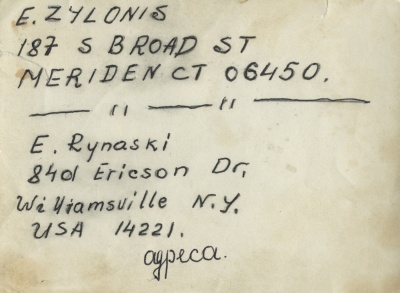 E. ZYLONIS
187 S BROAD ST
MERIDEN CT 06450.
— " — " —
E. Rynaski
84d Ericson Dr.
Williamsville N.Y.
USA 14221.
адреса.